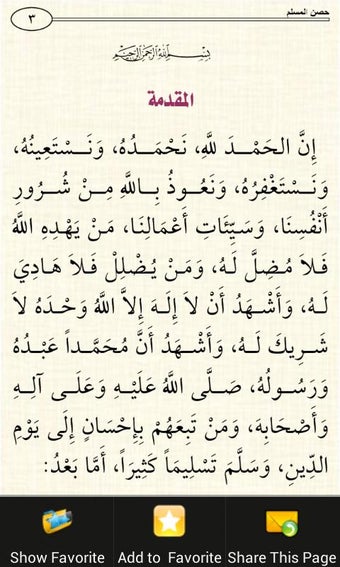 حصن المسلم
٣
بِسْمِ اللَّهِ الرَّحْمَنِ الرَّحِيمِ
المقدمة
إِنَّ الحَمْـدَ للَّهِ، نَحْمَـدُهُ، وَنَـسْتَعِينُهُ،
وَنَـسْتَغْفِرُهُ، وَنَعُوذُ بِـاللَّهِ مِـنْ شُـرُورِ
أَنْفُسِنَا، وَسَيِّئَاتِ أَعْمَالِنَا، مَنْ يَهْدِهِ اللَّهُ
فَلاَ مُضِلَّ لَـهُ، وَمَـنْ يُـضْلِلْ فَـلاَ هَادِيَ
لَـهُ، وَأَشْـهَدُ أَنْ لاَ إِلَـهَ إِلاَّ اللَّهُ وَحْـدَهُ لاَ
شَـرِيكَ لَـهُ، وَأَشْـهَدُ أَنَّ مُحَمَّـداً عَبْـدُهُ
وَرَسُـولُهُ، صَـلَّى اللَّهُ عَلَيْـهِ وَعَلَـى آلِـهِ
وَأَصْحَابِهِ، وَمَنْ تَبِعَهُمْ بِإِحْسَانٍ إِلَى يَوْمِ
الدِّينِ، وَسَلَّمَ تَسْلِيمَاً كَثِيرَاً، أَمَّا بَعْدُ:
Show Favorite
Add to Favorite
Share This Page